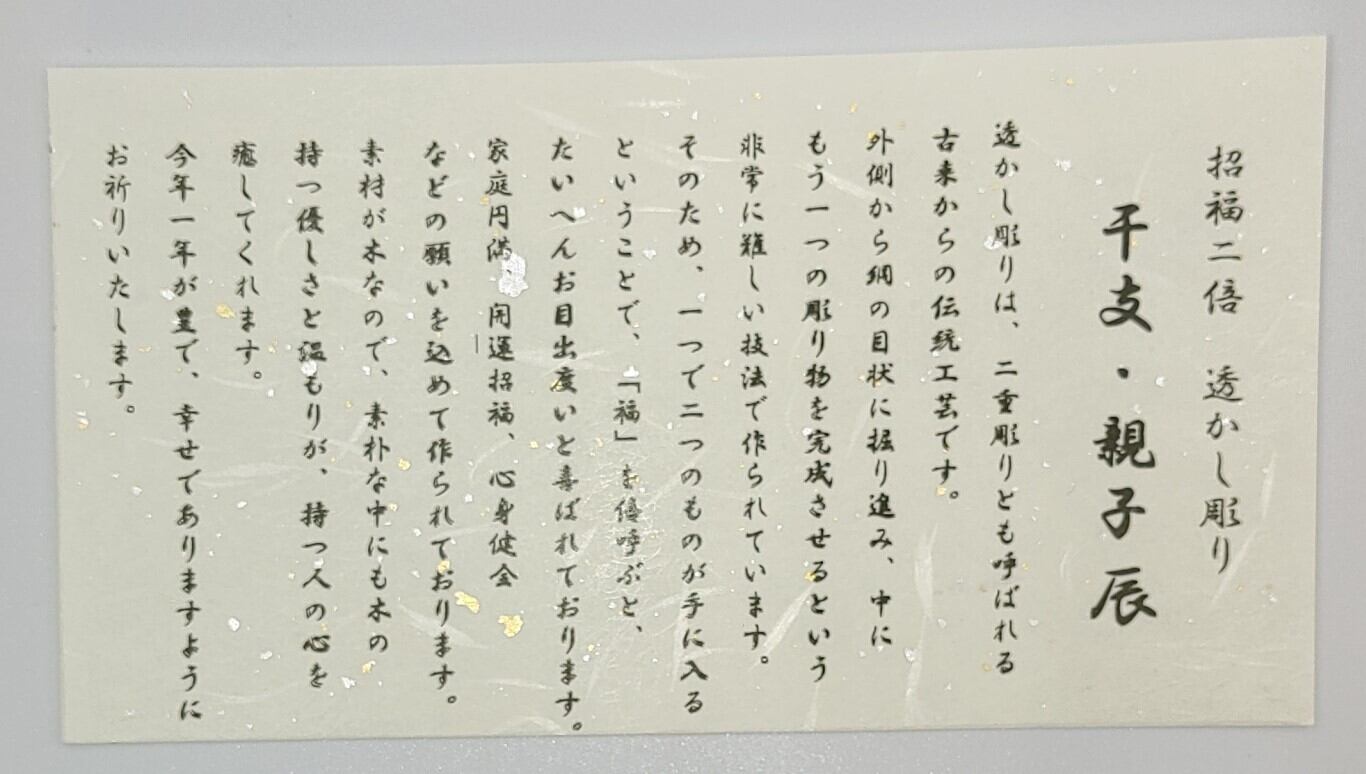 招福二倍 透かし彫り
干支・親子辰
透かし彫りは、二重彫りとも呼ばれる
古来からの伝統工芸です。
外側から網の目状に掘り進み、中に
もう一つの彫り物を完成させるという
非常に難しい技法で作られています。
そのため、一つで二つのものが手に入る
ということで、「福」を倍呼ぶと、
たいへんお目出度いと喜ばれております。
家庭円満、開運招福、心身健全
などの願いを込めて作られております。
素材が木なので、素朴な中にも木の
持つ優しさと温もりが、持つ人の心を
癒してくれます。
今年一年が豊で、幸せでありますように
お祈りいたします。